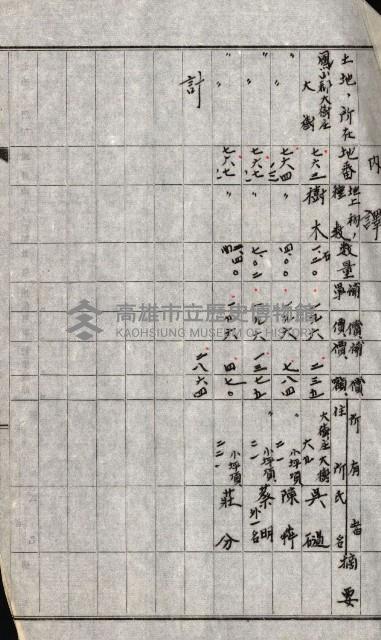 內譯
土地ノ所在 地番 地上物ノ種 數 數量 單價 補償價額 補償 所有者 住所 氏名 摘要
鳳山郡大樹庄大樹 七六三 樹木 一.二〇 一九六 二三五 大樹庄大樹 大五 吳磋
〃 〃 七六四 〃 四.〇〇 一九六 七八四 〃 小坪頂 二一 陳
〃 〃 七六七 〃 七.〇二 一九六 一三七五 〃 小坪頂 二一 蔡明 外一名
〃 〃 七六八 〃 二.四〇 一九六 四七〇 〃 小坪頂 二二 莊分
計 二八六四
高雄市立歷史博物館
KAOHSIUNG MUSEUM OF HISTORY